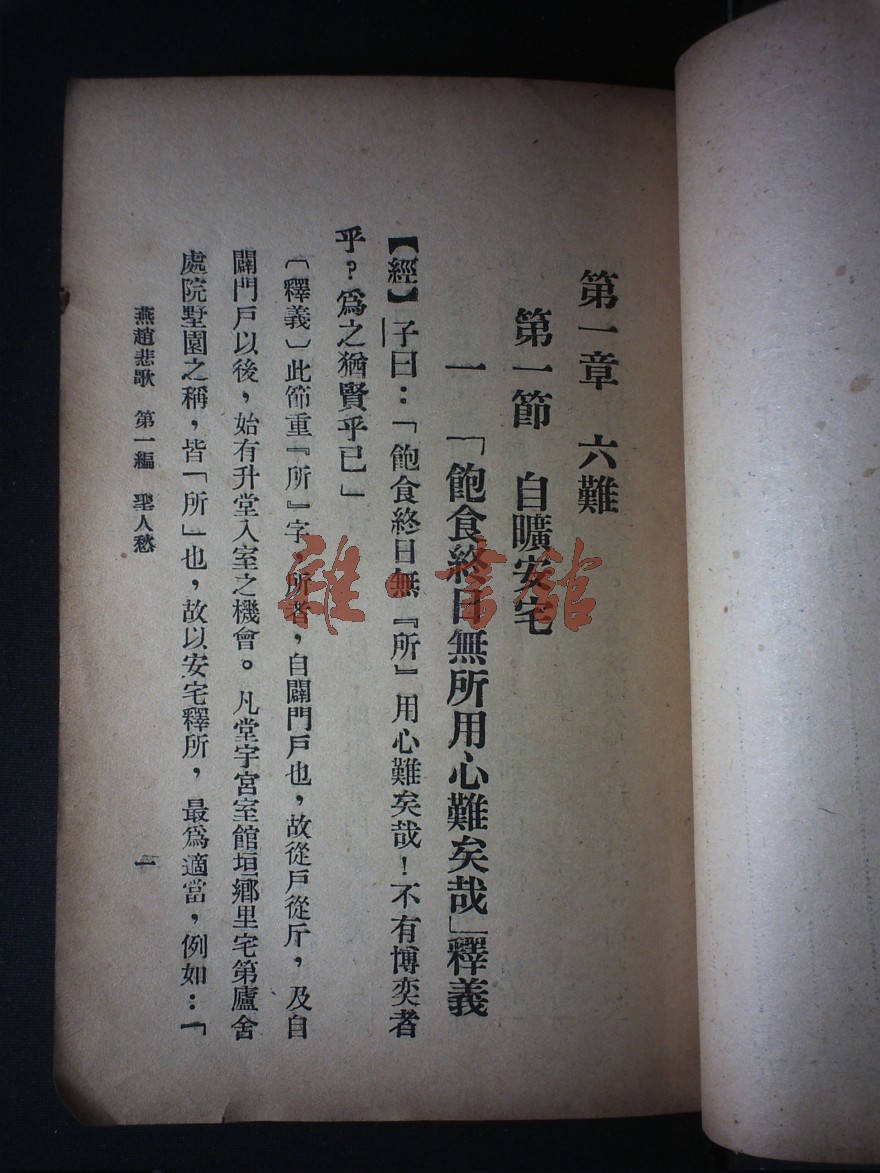 第一章 六難
第一節 自曠安宅
一 「飽食終日無所用心難矣哉」釋義
【經】子曰：「飽食終日無『所』用心難矣哉！不有博奕者
乎？爲之猶賢乎已」
〔釋義〕此節重『所』字，所者，自闢門戶也，故從戶從斤，及自
闢門戶以後，始有升堂入室之機會。凡堂宇宮室館垣鄉里宅第廬舍
處院墅園之稱，皆「所」也，故以安宅釋所，最爲適當，例如：「
燕趙悲歌 第一編 聖人愁
一
雜·書館